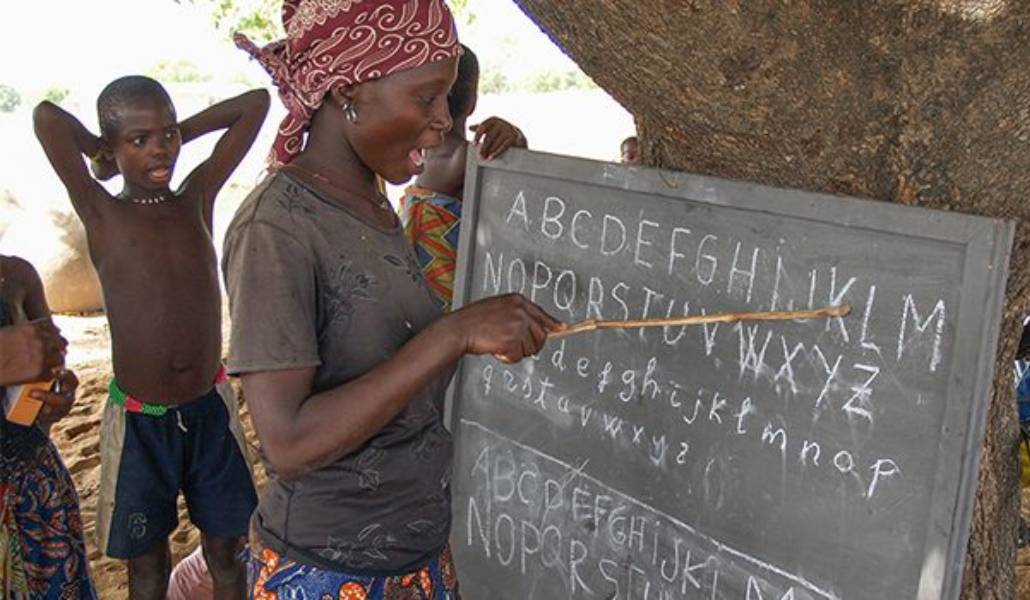 ABCDEFGHiJKLM
NOPQRSTUVWXYZ
defghijklmnop
qrstuvwxyz
ABCDEFGHiJKLM
NOPQRSTU